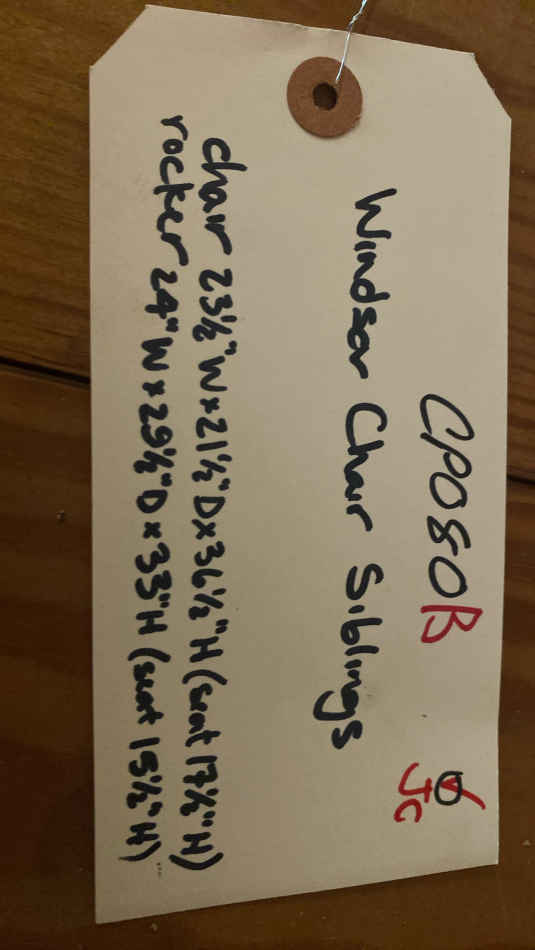 CPO80B
JC
Windsor Chair Siblings
chair 23½" W x 21½" D x 36½" H (seat 17½" H)
rocker 24" W x 29½" D x 33" H (seat 15½" H)